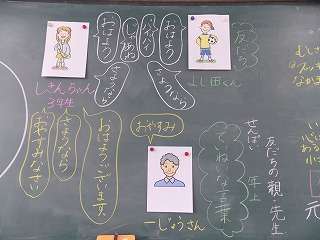 友だち
よし田くん
おはよう
さようなら
バイバイ
じゃあね
おはよう
さようなら
しさんちゃん
3年生
友だちの親・先生
せんぱい
年上
ていねいな言葉
おやすみ
一じょうさん
おはようございます。
さようなら
おやすみなさい
元